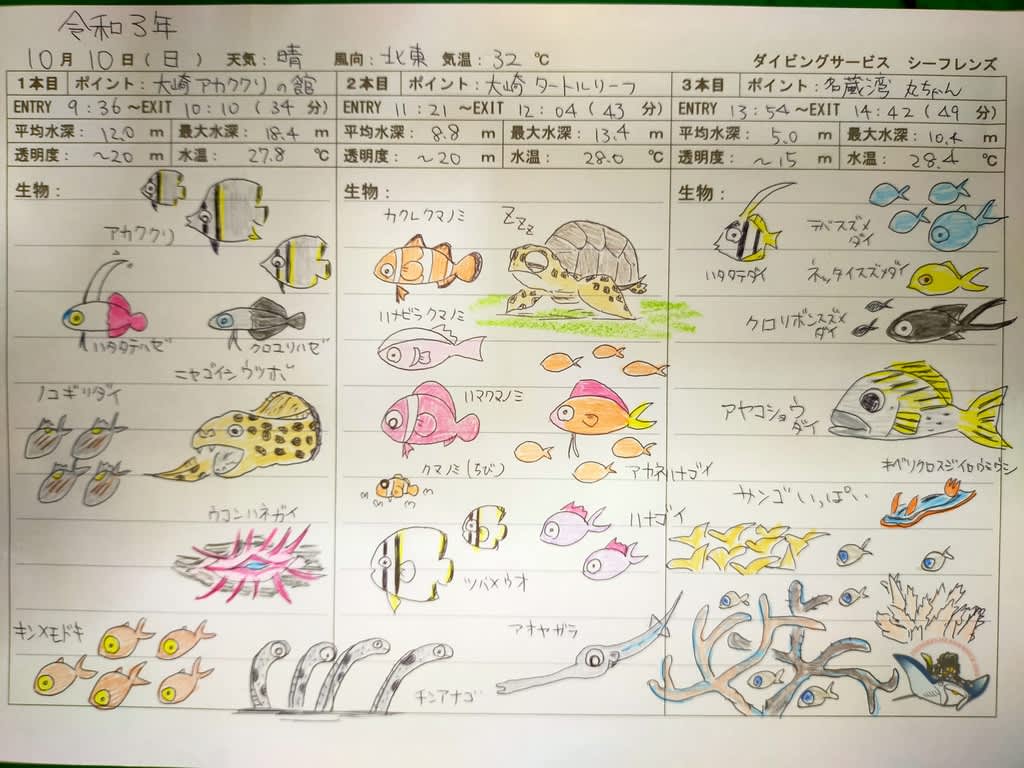 令和3年
10月10日(日) 天気:晴 風向:北東 気温:32℃ ダイビングサービス シーフレンズ
1本目 ポイント:大崎アカククリの館
ENTRY 9:36~EXIT 10:10(34分)
平均水深:12.0m 最大水深:18.4m
透明度:~20m 水温:27.8℃
生物:
アカククリ
ハタタテハゼ
クロユリハゼ
ニセゴイシウツボ
ノコギリダイ
ウコンハネガイ
キンメモドキ
2本目 ポイント:大崎タートルリーフ
ENTRY 11:21~EXIT 12:04(43分)
平均水深:8.8m 最大水深:13.4m
透明度:~20m 水温:28.0℃
生物:
カクレクマノミ
ZZZ
ハナビラクマノミ
ハマクマノミ
クマノミ(ちび)
アカネハナゴイ
ハナゴイ
ツバメウオ
アオヤガラ
チンアナゴ
3本目 ポイント:名蔵湾 丸ちゃん
ENTRY 13:54~EXIT 14:42(49分)
平均水深:5.0m 最大水深:10.4m
透明度:~15m 水温:28.4℃
生物:
デバスズメ
ダイ
ハタタテダイ
ネッタイスズメダイ
クロリボンスズメ
ダイ
アヤコショウ
ダイ
キベリクロスジイロウミウシ
サンゴいっぱい